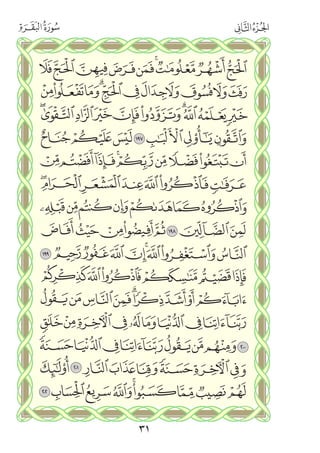 الجزء الثاني سورة البقرة
ٱلْحَجُّ أَشْهُرٌ مَّعْلُومَٰتٌ ۚ فَمَن فَرَضَ فِيهِنَّ ٱلْحَجَّ فَلَا
رَفَثَ وَلَا فُسُوقَ وَلَا جِدَالَ فِى ٱلْحَجِّ ۗ وَمَا تَفْعَلُوا۟ مِنْ
خَيْرٍ يَعْلَمْهُ ٱللَّهُ ۗ وَتَزَوَّدُوا۟ فَإِنَّ خَيْرَ ٱلزَّادِ ٱلتَّقْوَىٰ ۚ
وَٱتَّقُونِ يَٰٓأُو۟لِى ٱلْأَلْبَٰبِ ١٩٧ لَيْسَ عَلَيْكُمْ جُنَاحٌ
أَن تَبْتَغُوا۟ فَضْلًا مِّن رَّبِّكُمْ ۚ فَإِذَآ أَفَضْتُم مِّنْ
عَرَفَٰتٍ فَٱذْكُرُوا۟ ٱللَّهَ عِندَ ٱلْمَشْعَرِ ٱلْحَرَامِ ۖ
وَٱذْكُرُوهُ كَمَا هَدَىٰكُمْ وَإِن كُنتُم مِّن قَبْلِهِۦ
لَمِنَ ٱلضَّآلِّينَ ١٩٨ ثُمَّ أَفِيضُوا۟ مِنْ حَيْثُ أَفَاضَ
ٱلنَّاسُ وَٱسْتَغْفِرُوا۟ ٱللَّهَ ۚ إِنَّ ٱللَّهَ غَفُورٌ رَّحِيمٌ ١٩٩
فَإِذَا قَضَيْتُم مَّنَٰسِكَكُمْ فَٱذْكُرُوا۟ ٱللَّهَ كَذِكْرِكُمْ
ءَابَآءَكُمْ أَوْ أَشَدَّ ذِكْرًا ۗ فَمِنَ ٱلنَّاسِ مَن يَقُولُ
رَبَّنَآ ءَاتِنَا فِى ٱلدُّنْيَا وَمَا لَهُۥ فِى ٱلْءَاخِرَةِ مِنْ خَلَٰقٍ
٢٠٠ وَمِنْهُم مَّن يَقُولُ رَبَّنَآ ءَاتِنَا فِى ٱلدُّنْيَا حَسَنَةً
وَفِى ٱلْءَاخِرَةِ حَسَنَةً وَقِنَا عَذَابَ ٱلنَّارِ ٢٠١ أُو۟لَٰٓئِكَ
لَهُمْ نَصِيبٌ مِّمَّا كَسَبُوا۟ ۚ وَٱللَّهُ سَرِيعُ ٱلْحِسَابِ ٢٠٢
٣١